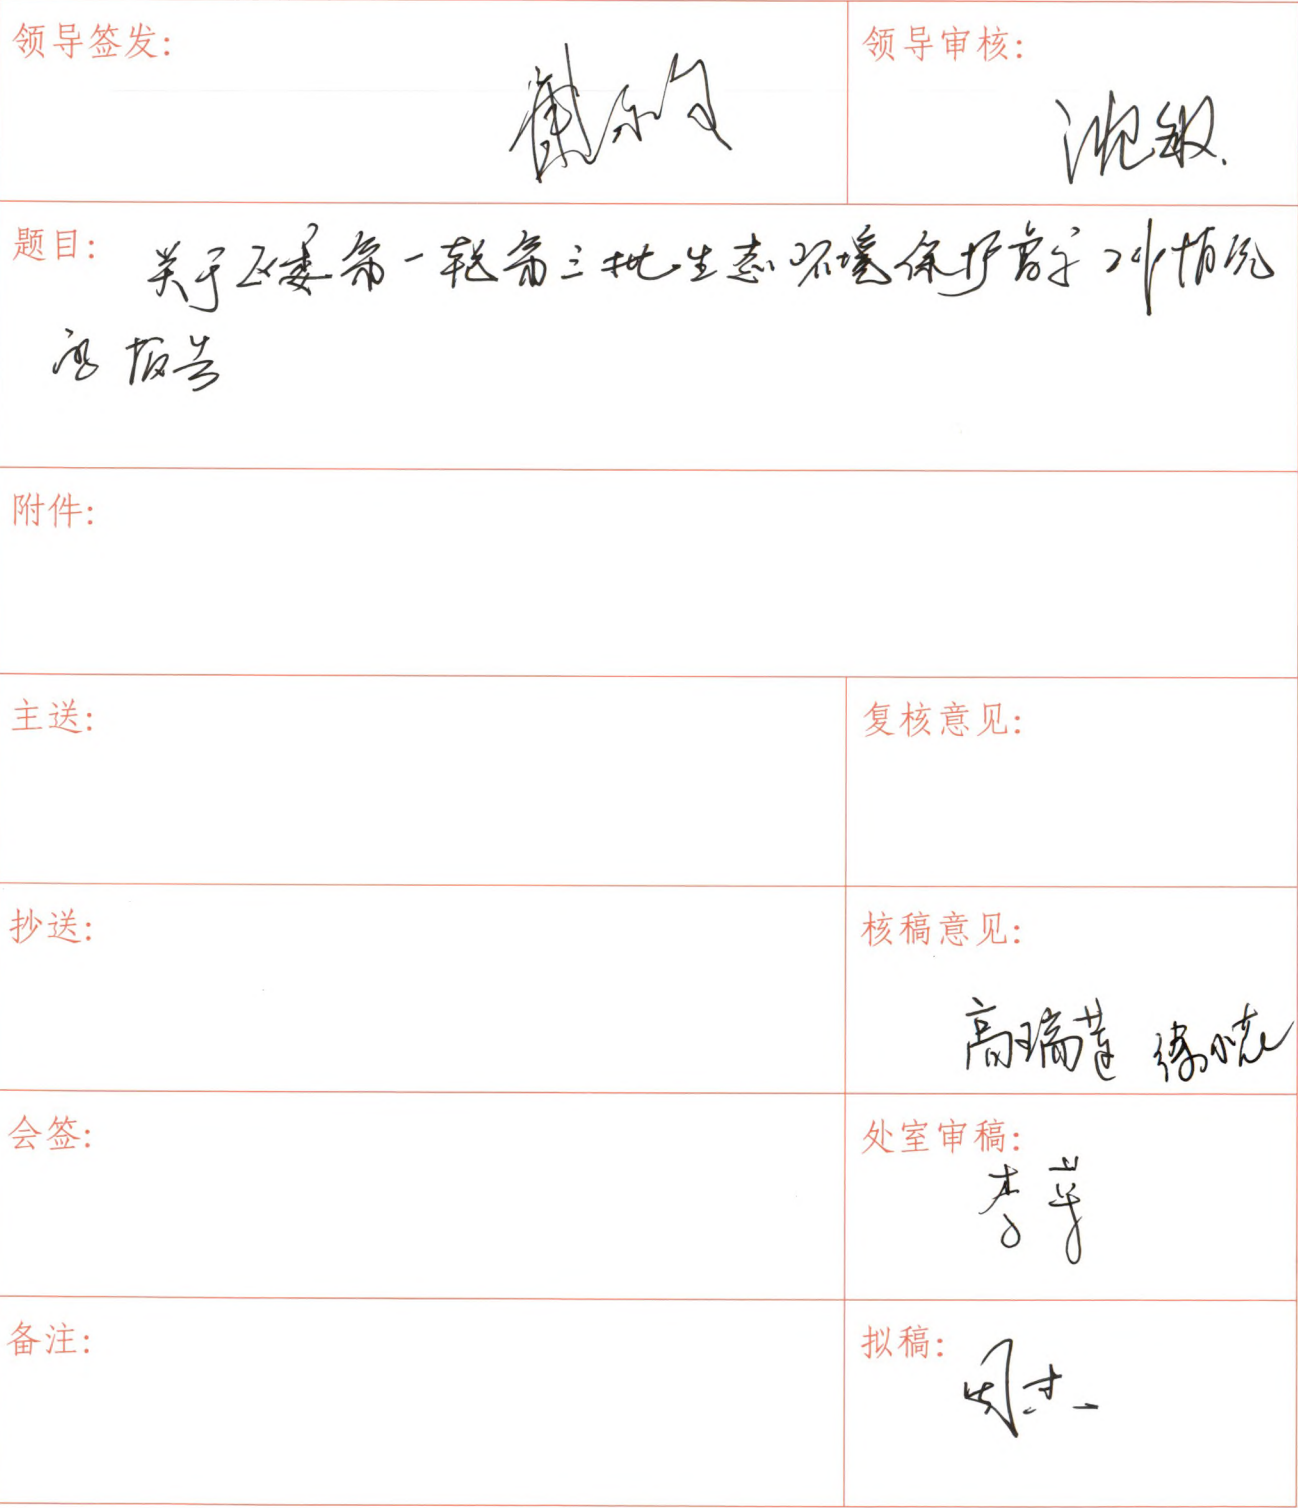 领导签发:
领导审核:
沈敏
题目: 关于区委第一轮第三批生态环境保护督察 情况
的报告
附件:
主送:
复核意见:
抄送:
核稿意见:
高瑞莲
会签:
处室审稿:
李萍
备注:
拟稿:
周杰